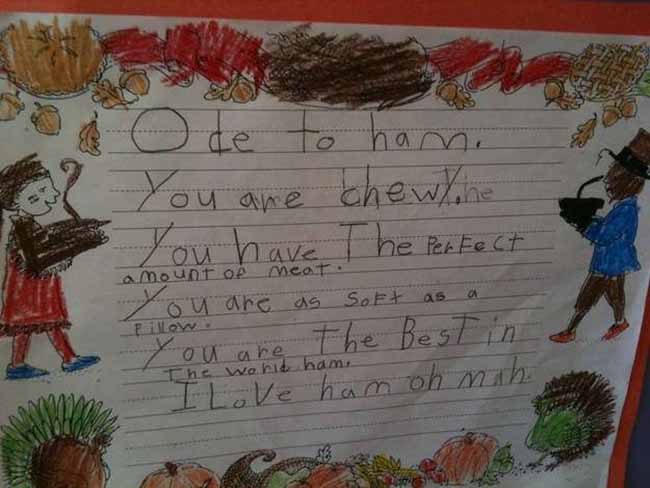 Ode to ham.
You are chewy. he
You have The Perfect
amount of meat.
You are as soft as a
Pillow.
You are the Best in
The world ham.
I Love ham oh mah.